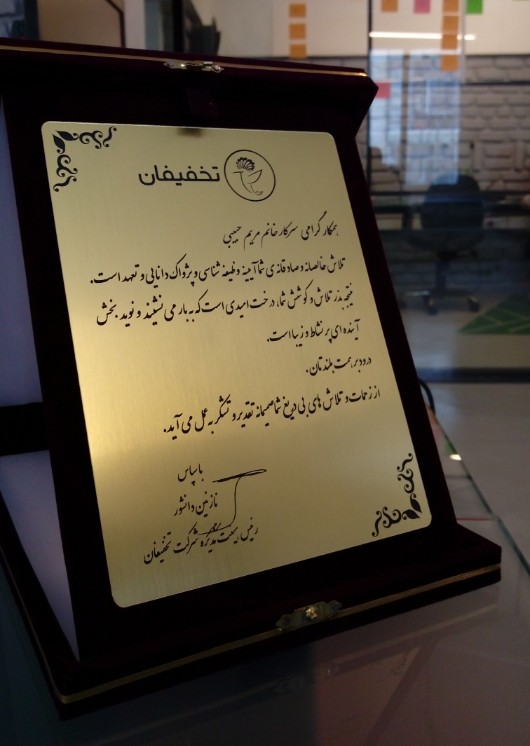 تخفیفان
همکار گرامی سرکار خانم مریم حبیبی
تلاش خالصانه و صادقانه ی شما آیینه وظیفه شناسی و پژواک دانایی و تعهد است.
نتیجه بذر تلاش و کوشش شما، درخت امیدی است که به بار می نشیند و نوید بخش
آینده ای پر نشاط و زیبا است.
درود بر همت بلندتان.
از زحمات و تلاش های بی دریغ شما صمیمانه تقدیر و تشکر به عمل می آید.
با سپاس
نازنین دانشور
رئیس هیئت مدیره شرکت تخفیفان